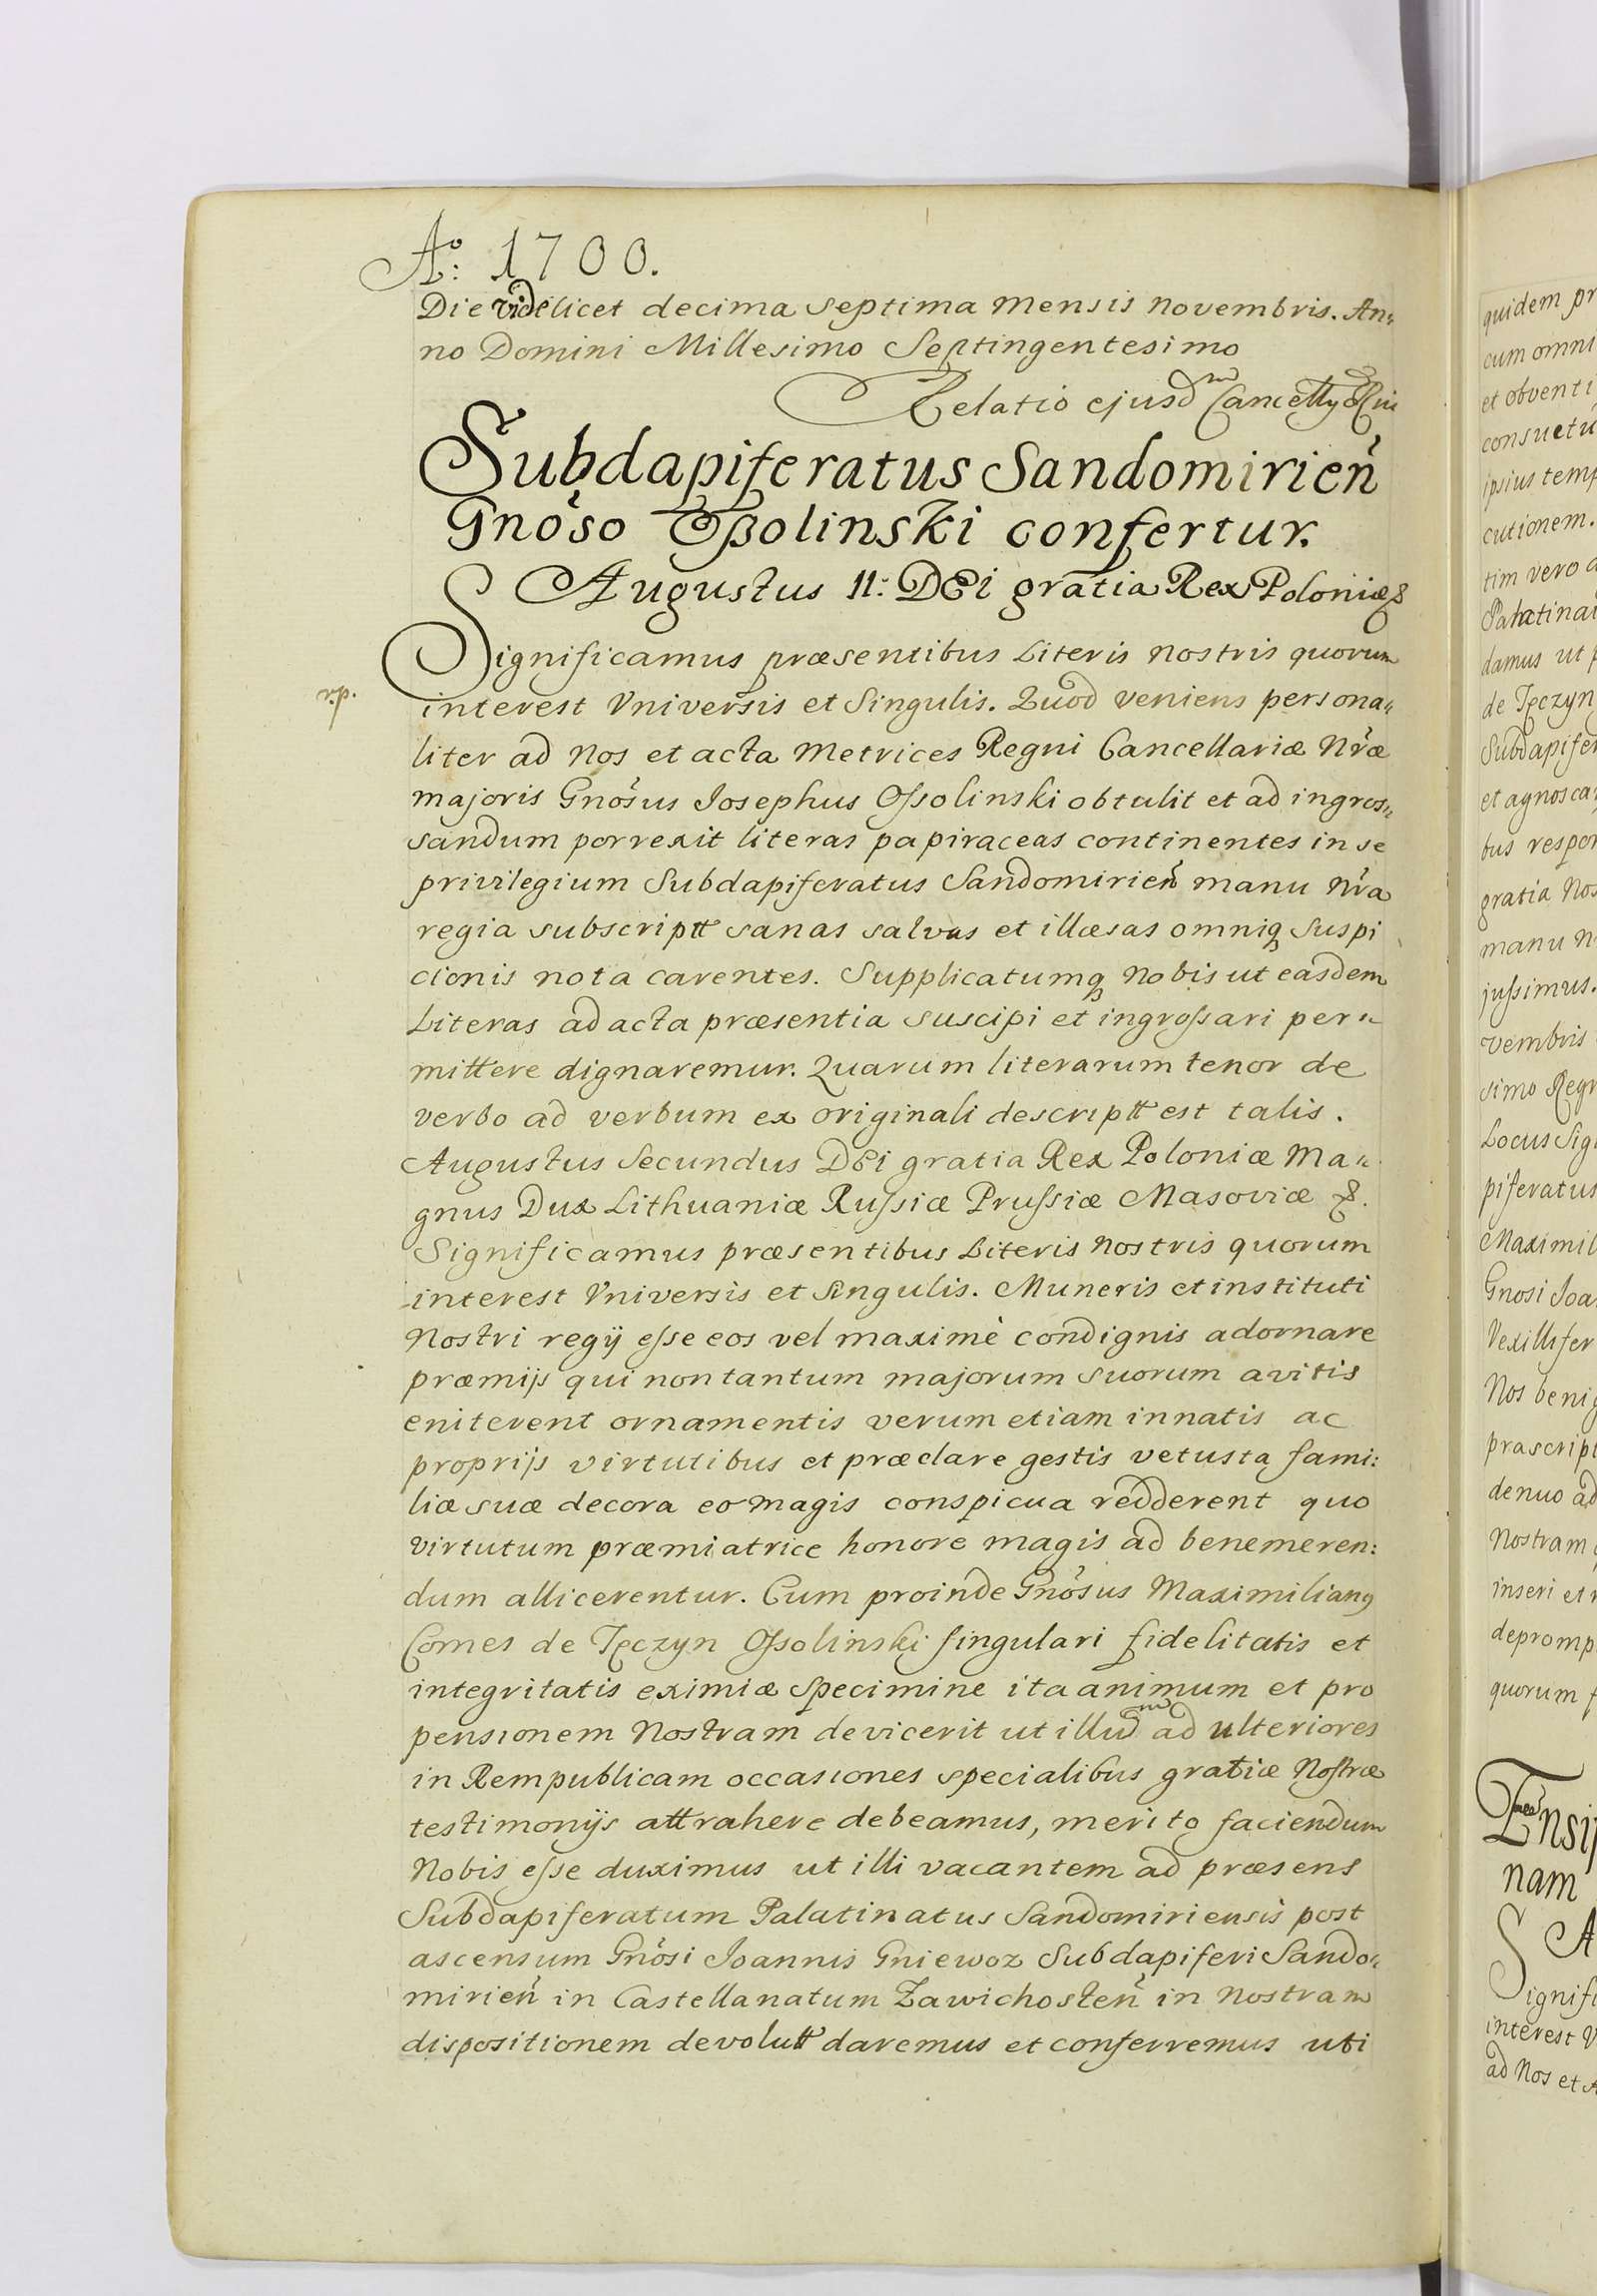 Aº: 1700.
Die videlicet decima septima mensis novembris. An„
no Domini Millesimo Septingentesimo
Relatio ejusd
Subdapiferatus Sandomirień
Gnóso Oßolinski confertur.
Augustus II: DEi gratia Rex Poloniæ &
Significamus præsentibus Literis nostris quorum
r.p.
interest Vniversis et Singulis. Quod veniens persona„
liter ad Nos et acta metrices Regni Cancellariæ Nr̃æ
majoris Gnósus Josephus Oſsolinski obtulit et ad ingros„
sandum porrexit literas papiraceas continentes in se
privilegium Subdapiferatus Sandomirień manu nr̃a
regia subscriptt sanas salvas et illæsas omniq suspi
cionis nota carentes. Supplicatumq nobis ut easdem
Literas ad acta præsentia suscipi et ingroſsari per„
mittere dignaremur. Quarum literarum tenor de
verbo ad verbum ex originali descriptt est talis.
Augustus Secundus DEi gratia Rex Poloniæ Ma„
gnus Dux Lithuaniæ Ruſsiæ Pruſsiæ Masoviæ &.
Significamus præsentibus Literis nostris quorum
interest Vniversis et Singulis. Muneris et instituti
Nostri regij eſse eos vel maximè condignis adornare
præmijs qui non tantum majorum suorum avitis
eniterent ornamentis verum etiam innatis ac
proprijs virtutibus et præclare gestis vetusta fami:
liæ suæ decora eo magis conspicua redderent quo
virtutum præmiatrice honore magis ad benemeren:
dum allicerentur. Cum proinde Gnósus Maximilianꝯ
Comes de Tęczyn Oſsolinski singulari fidelitatis et
integritatis eximiæ specimine ita animum et pro
pensionem Nostram devicerit ut illud ad ulteriores
in Rempublicam occasiones specialibus gratiæ Nostræ
testimonijs attrahere debeamus, merito faciendum
Nobis eſse duximus ut illi vacantem ad præsens
Subdapiferatum Palatinatus Sandomiriensis post
ascensum Gnósi Joannis Gniewoz Subdapiferi Sando„
mirień in Castellanatum Zawichosteń in nostram
dispositionem devolutt daremus et conferremus uti
quidem pr
cum omni
et obventi
consuetu
ipsius temp
cutionem.
tim vero a
Palatinat
damus ut p
de Tęczyn
Subdapifer
et agnosca
bus respon
gratia Nos
manu n
juſsimus.
vembris
simo Regn
Locus Sigi
piferatus
Maximil
Gnosi Joa
Vexillifer
Nos benig
præscript
denuo ad
Nostram
inseri et
depromp
quorum f
nam
S A
ignifi
interest V
ad Nos et A